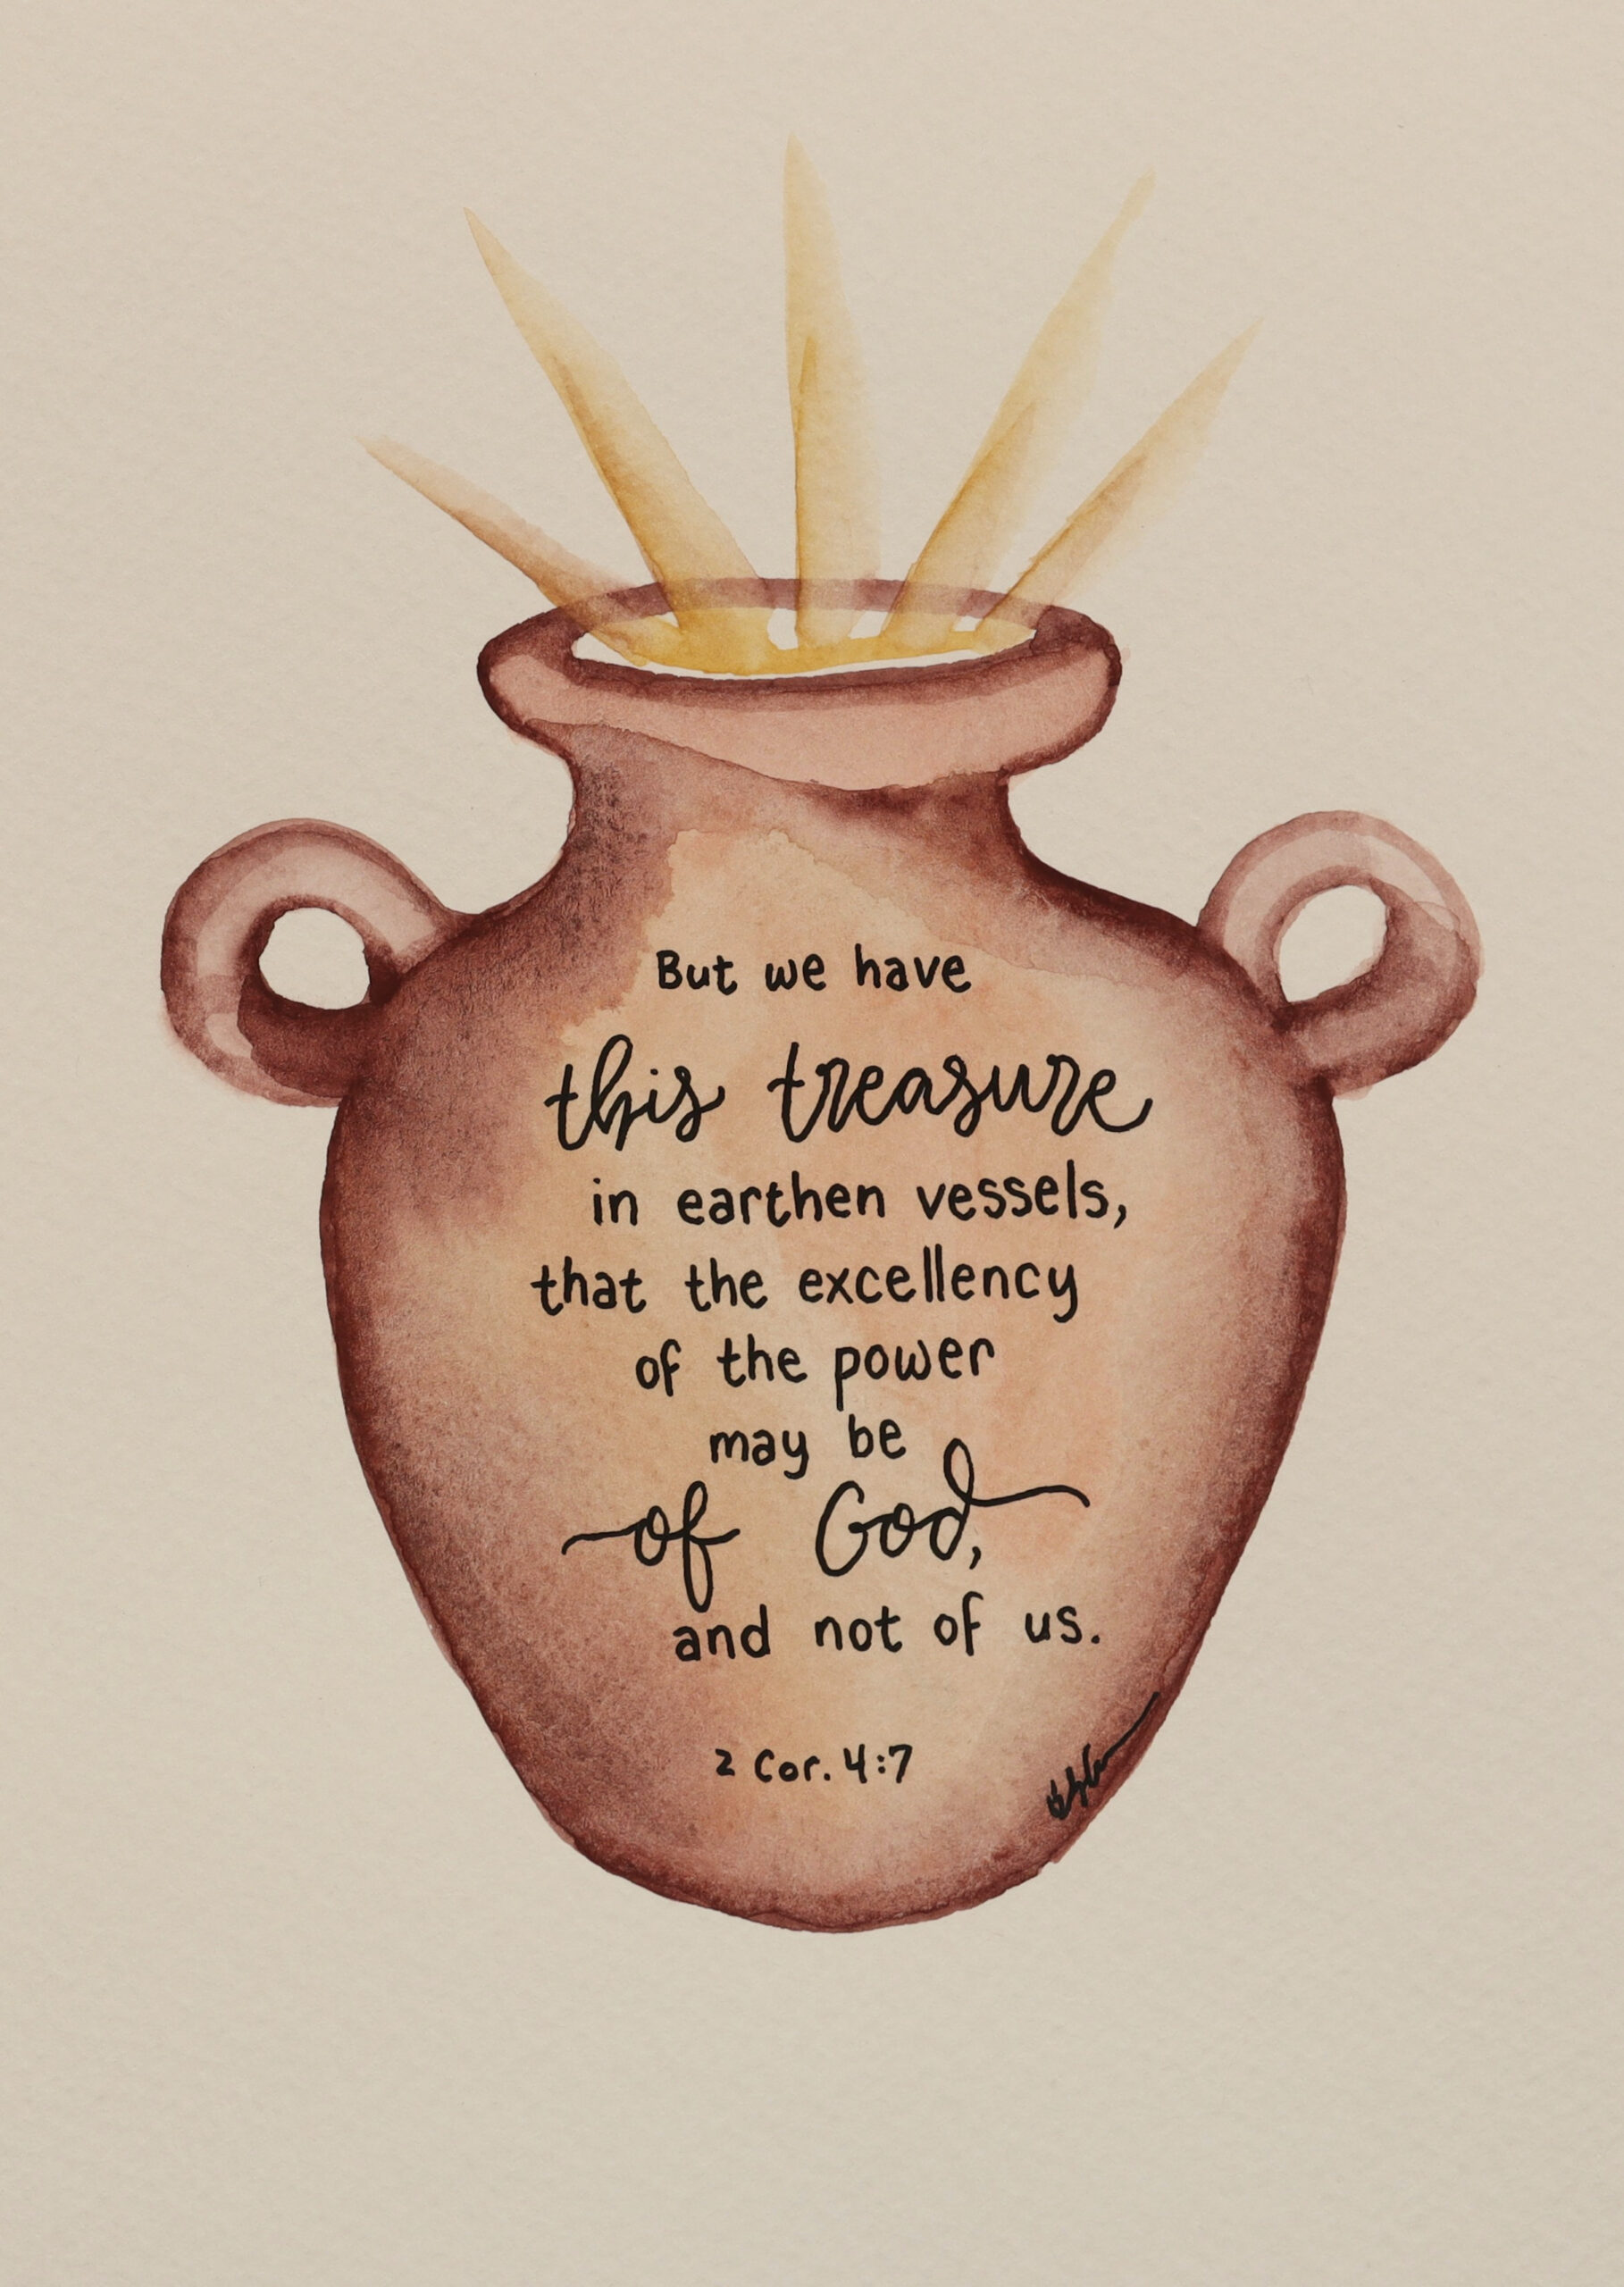 But we have
this treasure
in earthen vessels,
that the excellency
of the power
may be
of God,
and not of us.
2 Cor. 4:7